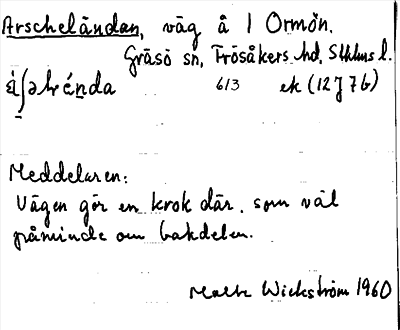 Arscheländan, väg å l Ormön.
Gräsö sn, Frösåkers hd, Sthlms l.
613 ek (12J 7b)
Meddelaren:
Vägen gör en krok där, som väl
påminde om bakdelen.
Malte Wickström 1960